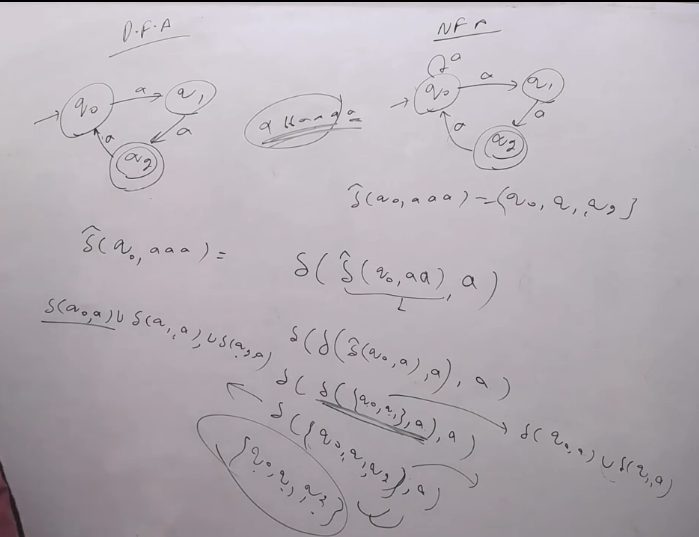 D.F.A
NFA
a
q0 a q1
q0 a q1
a
a
a
a
q2
q2
δ̂(q0, aaa) = {q0, q1, q2}
δ̂(q0, aaa) =
δ(δ̂(q0, aa), a)
δ(q0,a) ∪ δ(q1,a) ∪ δ(q2,a)
δ(δ(δ̂(q0, a), a), a)
δ(δ({q0,q1}, a), a)
δ(q0,a) ∪ δ(q1,a)
δ({q0, q1, q2}, a)
{q0, q1, q2}